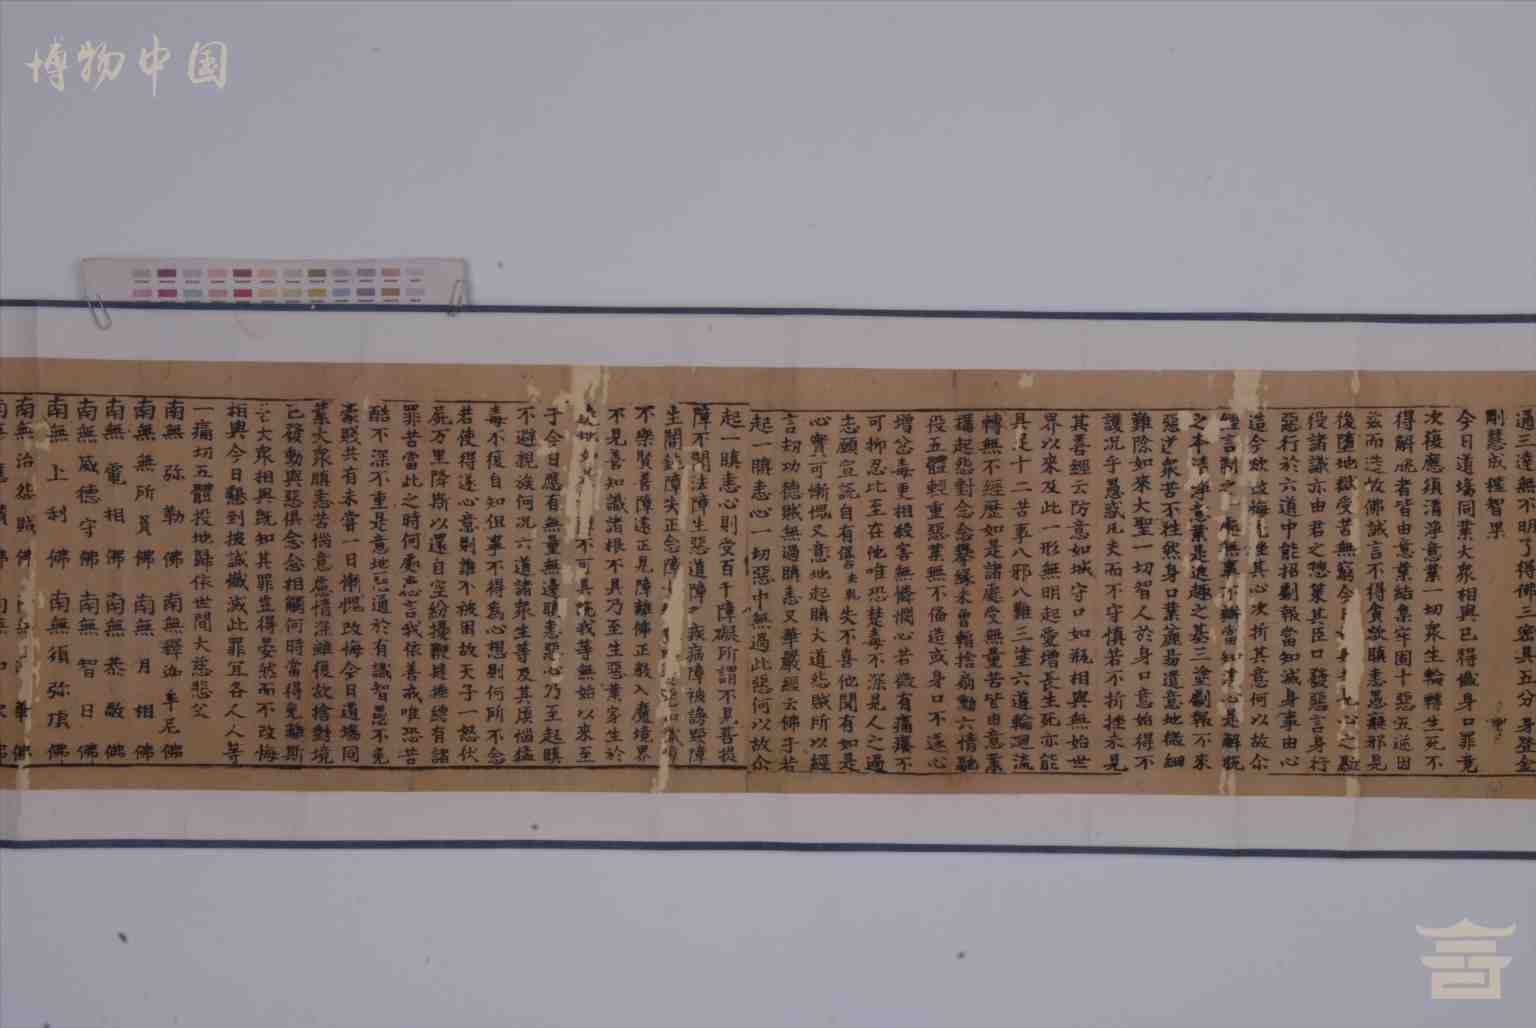 博物中国
通三達無不明了得佛三密具五分身登金
剛慧成種智果
今日道場同業大衆相與已得懺身口罪竟
次復應須清淨意業一切衆生輪轉生死不
得解脱者皆由意業結集牢固十惡五逆因
兹而造故佛誡言不得貪欲瞋恚愚癡邪見
後墮地獄受苦無窮今日
役諸識亦由君之揔策其臣口發惡言身行
惡行於六道中能招劇報當知滅身事由心
造今欲改悔先挫其心次折其意何以故尒
經言制之一處無事不辦當知淨心是解脱
之本清淨意業是進趣之基三塗劇報不來
惡道衆苦不往然身口業麁易遣意地微細
難除如來大聖一切智人於身口意始得不
護况乎愚惑凡夫而不守慎若不折挫未見
其善經云防意如城守口如瓶相與無始世
界以來及此一形無明起愛增長生死亦能
具足十二苦事八邪八難三塗六道輪迴流
轉無不經歷如是諸處受無量苦皆由意業
構起怨對念念攀緣未曾暫捨扇動六情馳
役五體輕重惡業無不俻造或身口不遂心
增忿毒更相殺害無憐愍心若微有痛癢不
可抑忍比至在他唯恐楚毒不深見人之過
志願宣說自有 失不喜他聞有如是
心實可慚愧又意地起瞋大道怨賊所以經
言刼功德賊無過瞋恚又華嚴經云佛子若
起一瞋恚心一切惡中無過此惡何以故尒
起一瞋恚心則受百千障礙所謂不見菩提
障不聞法障生惡道障 疾病障被謗毁障
生闇鈍障失正念障
不樂賢善障遠正見障離佛正教入魔境界
不見善知識諸根不具乃至生惡業家生於
不可具說我等無始以來至
于今日應有無量無邊瞋恚惡心乃至起瞋
不避親族何况六道諸衆生等及其煩惱猛
毒不復自知但事不得爲心想剔何所不念
若使得遂心意則誰不被困故天子一怒伏
屍万里降斯以還自空紛擾鞭撻捶縛有諸
罪苦當此之時何處而言我依善戒唯恐苦
酷不深不重是意地惡通於有識智愚不免
豪賤共有未嘗一日慚愧改悔今日道場同
業大衆瞋恚苦惱意慮情深雖復欲捨對境
已發動與惡俱念念相觸何時當得免離斯
苦大衆相與既知其罪豈得晏然而不改悔
相與今日懇到披誠懺滅此罪宜各人人等
一痛切五體投地歸依世間大慈悲父
南無 弥 勒 佛 南無釋迦牟尼佛
南無無所負 佛 南無 月 相 佛
南無 電 相 佛 南無 恭 敬 佛
南無威德守 佛 南無 智 日 佛
南無 上 利 佛 南無須弥頂 佛
南無治怨賊 佛